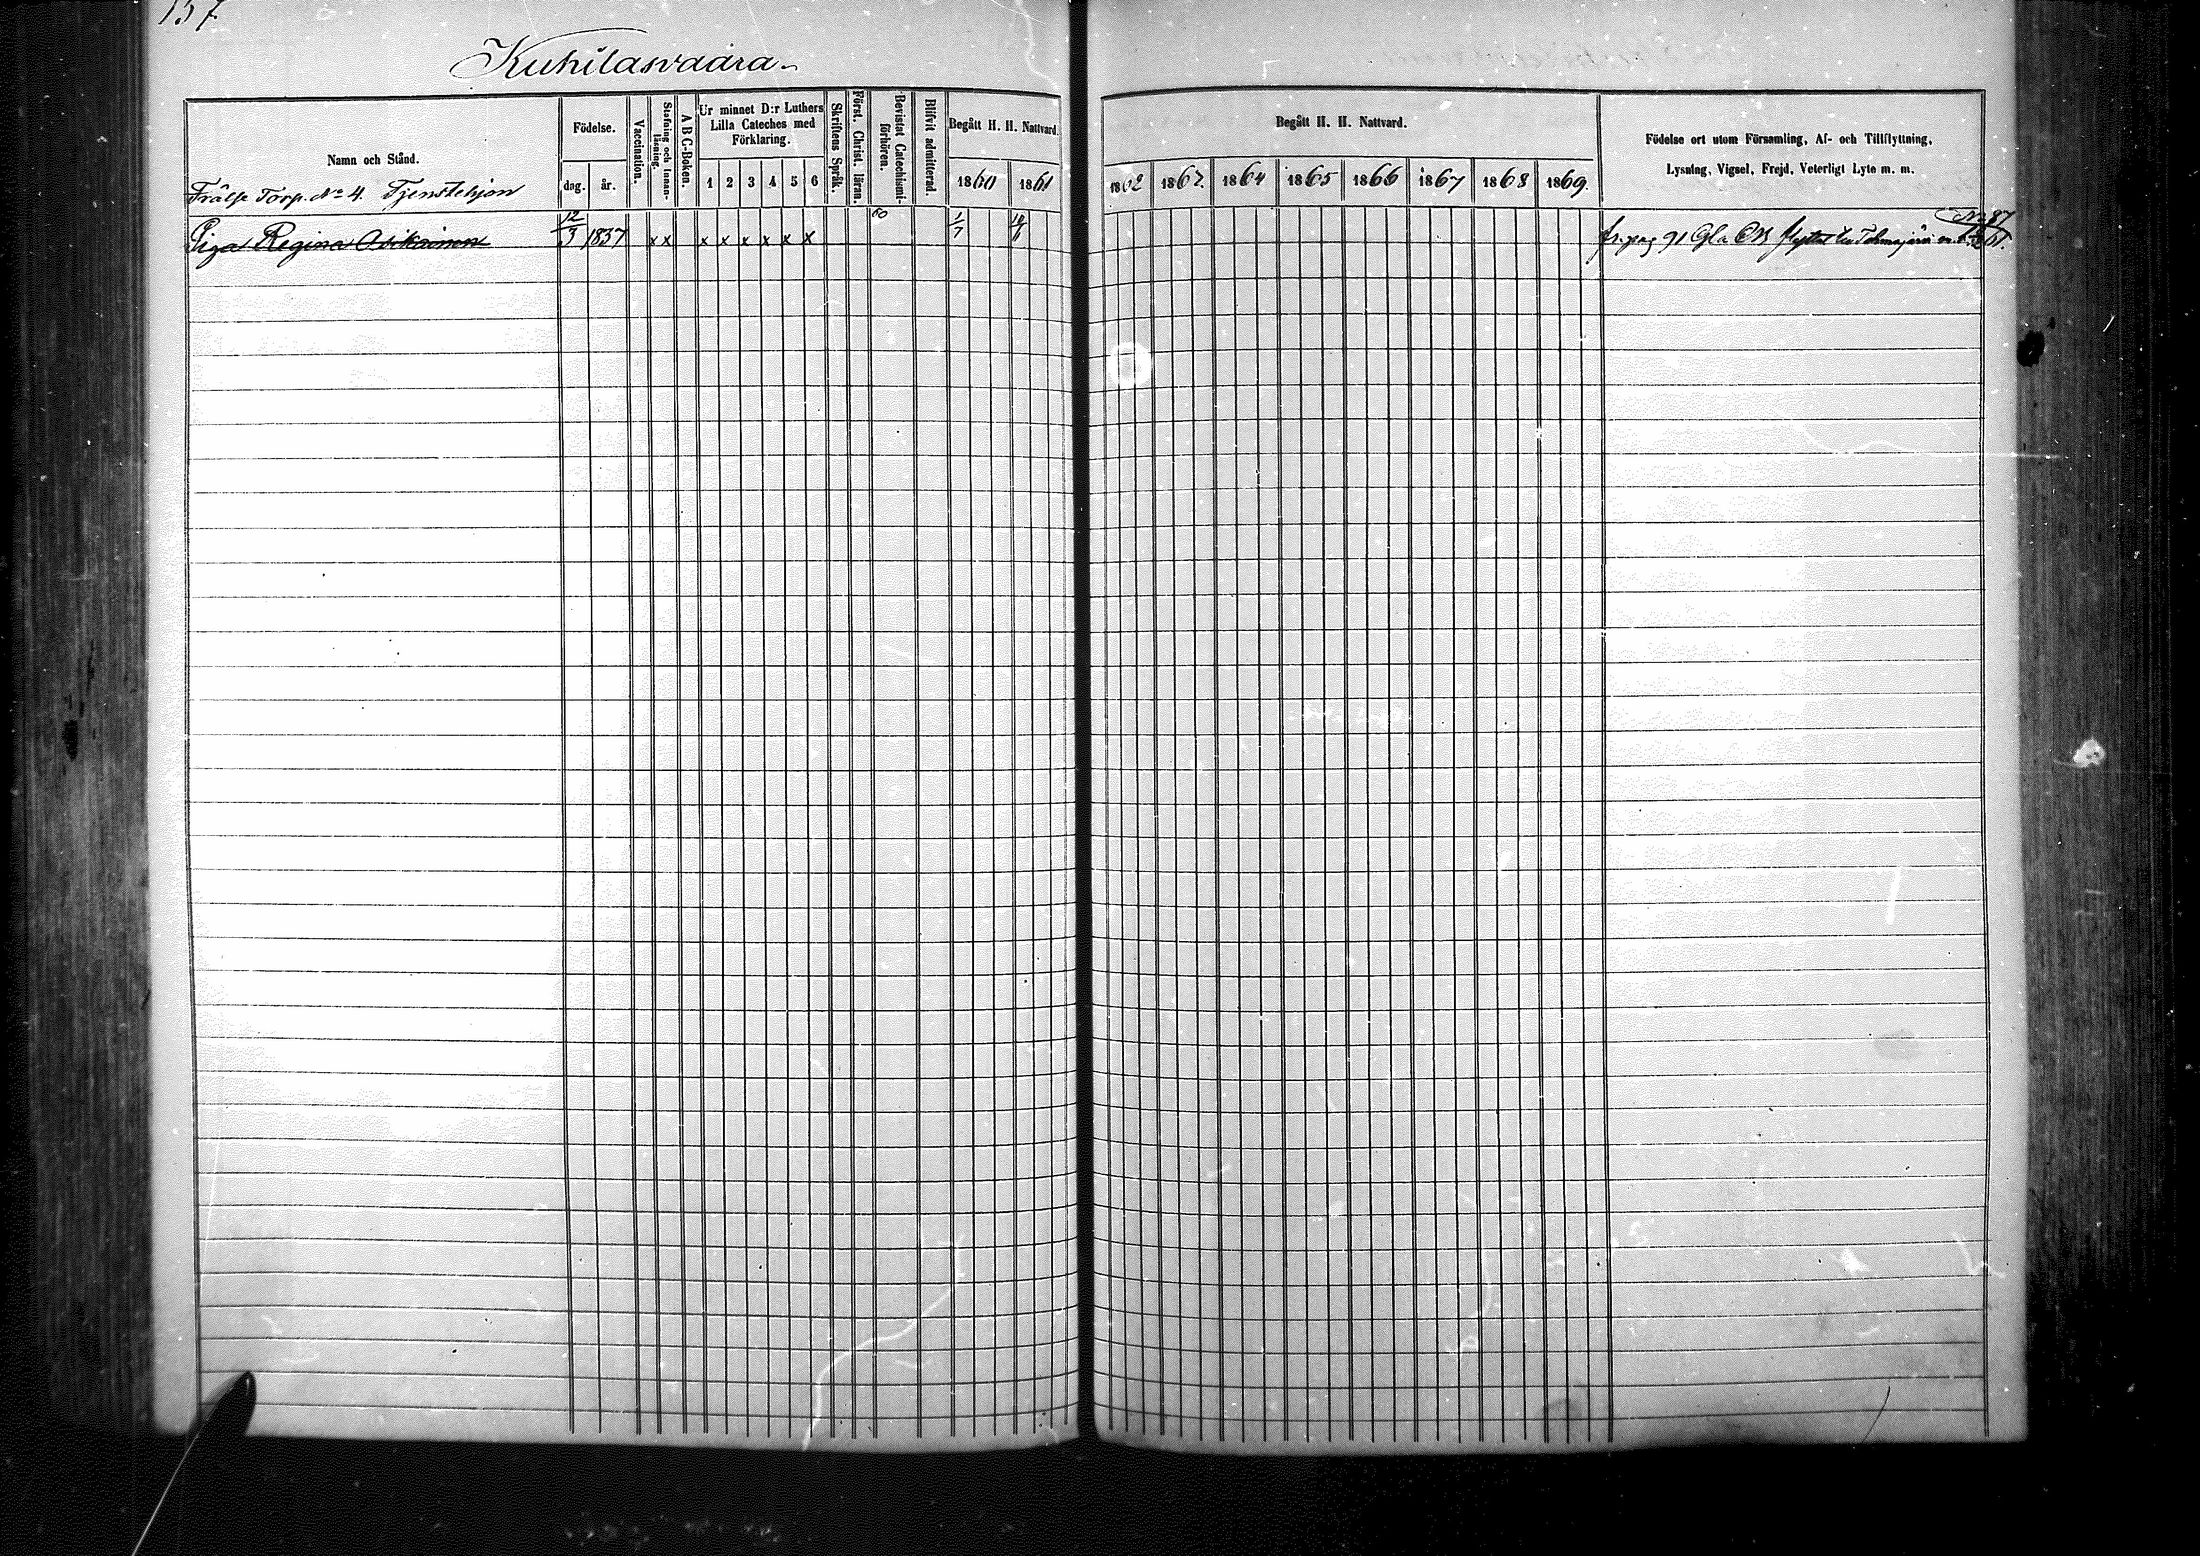 157
Kuhilasvaara
Namn och Stånd.
Frälse Torp. No 4. Tjenstehjon
Födelse.
dag. år.
Vaccination.
Stafning och Innan-läsning.
A B C-Boken.
Ur minnet D:r Luthers
Lilla Cateches med
Förklaring.
1 2 3 4 5 6
Skriftens Språk.
Först. Christ. läran.
Bevistat Catechismi-förhören.
Blifvit admitterad.
Begått H. H. Nattvard.
1860 1861
Begått H. H. Nattvard.
1862 1863 1864 1865 1866 1867 1868 1869
Födelse ort utom Församling, Af- och Tillflyttning,
Lysning, Vigsel, Frejd, Veterligt Lyte m. m.
Piga Regina Asikainen 12/3 1837 x x x x x x x x 60 1/7
fr. pag 91 Gla CB flyttat till Tohmajärvi No 87 61.